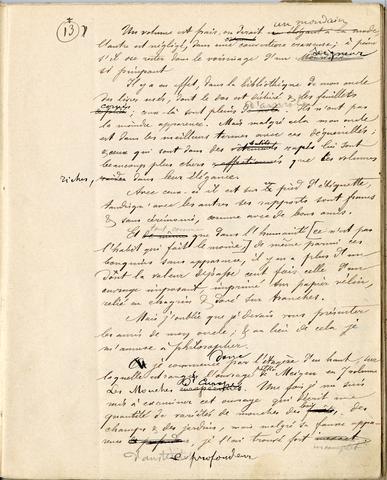 13
un mondain
Un volume est frais, on dirait élégant à la mode
l'autre est négligé, dans une couverture crasseuse; à peine
s'il ose rester dans le voisinage d'un seigneur
et pimpant.
Il y a en effet, dans la bibliothèque de mon oncle
des livres usés, dont le dos est déchiré & les feuillets
cornés; ceux-là sont pleins Ils n'ont pas
la moindre apparence. Mais malgré cela mon oncle
est dans les meilleurs termes avec ces déguenillés;
& ceux qui sont dans des habits rapés lui sont
beaucoup plus chers que les volumes
riches, dans leur élégance.
Avec ceux-ci il est sur le pied d'étiquette,
tandisqu'avec les autres ses rapports sont francs
& sans cérémonie, comme avec de bons amis.
Et tout comme que dans l'humanité [ce n'est pas
l'habit qui fait le moine,] de même parmi ces
bouquins sans apparence, il y en a plus d'un
dont la valeur dépasse cent fois celle d'un
ouvrage imposant imprimé sur papier vélin,
relié en chagrin & doré sur tranches.
Mais j'oublie que je devais vous présenter
les amis de mon oncle; & au lieu de cela je
m'amuse à philosopher.
Or je commence donc par l'étagère d'en haut, sur
laquelle est rangé l'ouvrage de Meigen en 7 volumes
Les Mouches d'Europe. Une fois je me suis
mis à examiner cet ouvrage qui décrit une
quantité de variétés de mouches des bois, des
champs & des jardins; mais malgré sa fausse appa-
rence je l'ai trouvé fort incomplet
d'austère profondeur